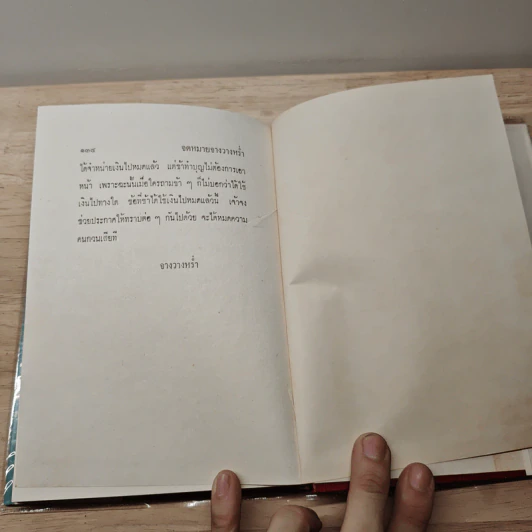 ๑๓๘ จดหมายจางวางหร่ำ
ได้จำหน่ายเงินไปหมดแล้ว แต่ข้าทำบุญไม่ต้องการเอา
หน้า เพราะฉะนั้นเมื่อใครถามข้า ๆ ก็ไม่บอกว่าได้ใช้
เงินไปทางใด ข้อที่ข้าได้ใช้เงินไปหมดแล้วนี้ เจ้าจง
ช่วยประกาศให้ทราบต่อ ๆ กันไปด้วย จะได้หมดความ
คนกวนเสียที
จางวางหร่ำ